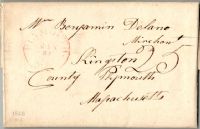 Mr Benjamin Delano
Merchant
Kingston
25
County Plymouth
Massachusetts